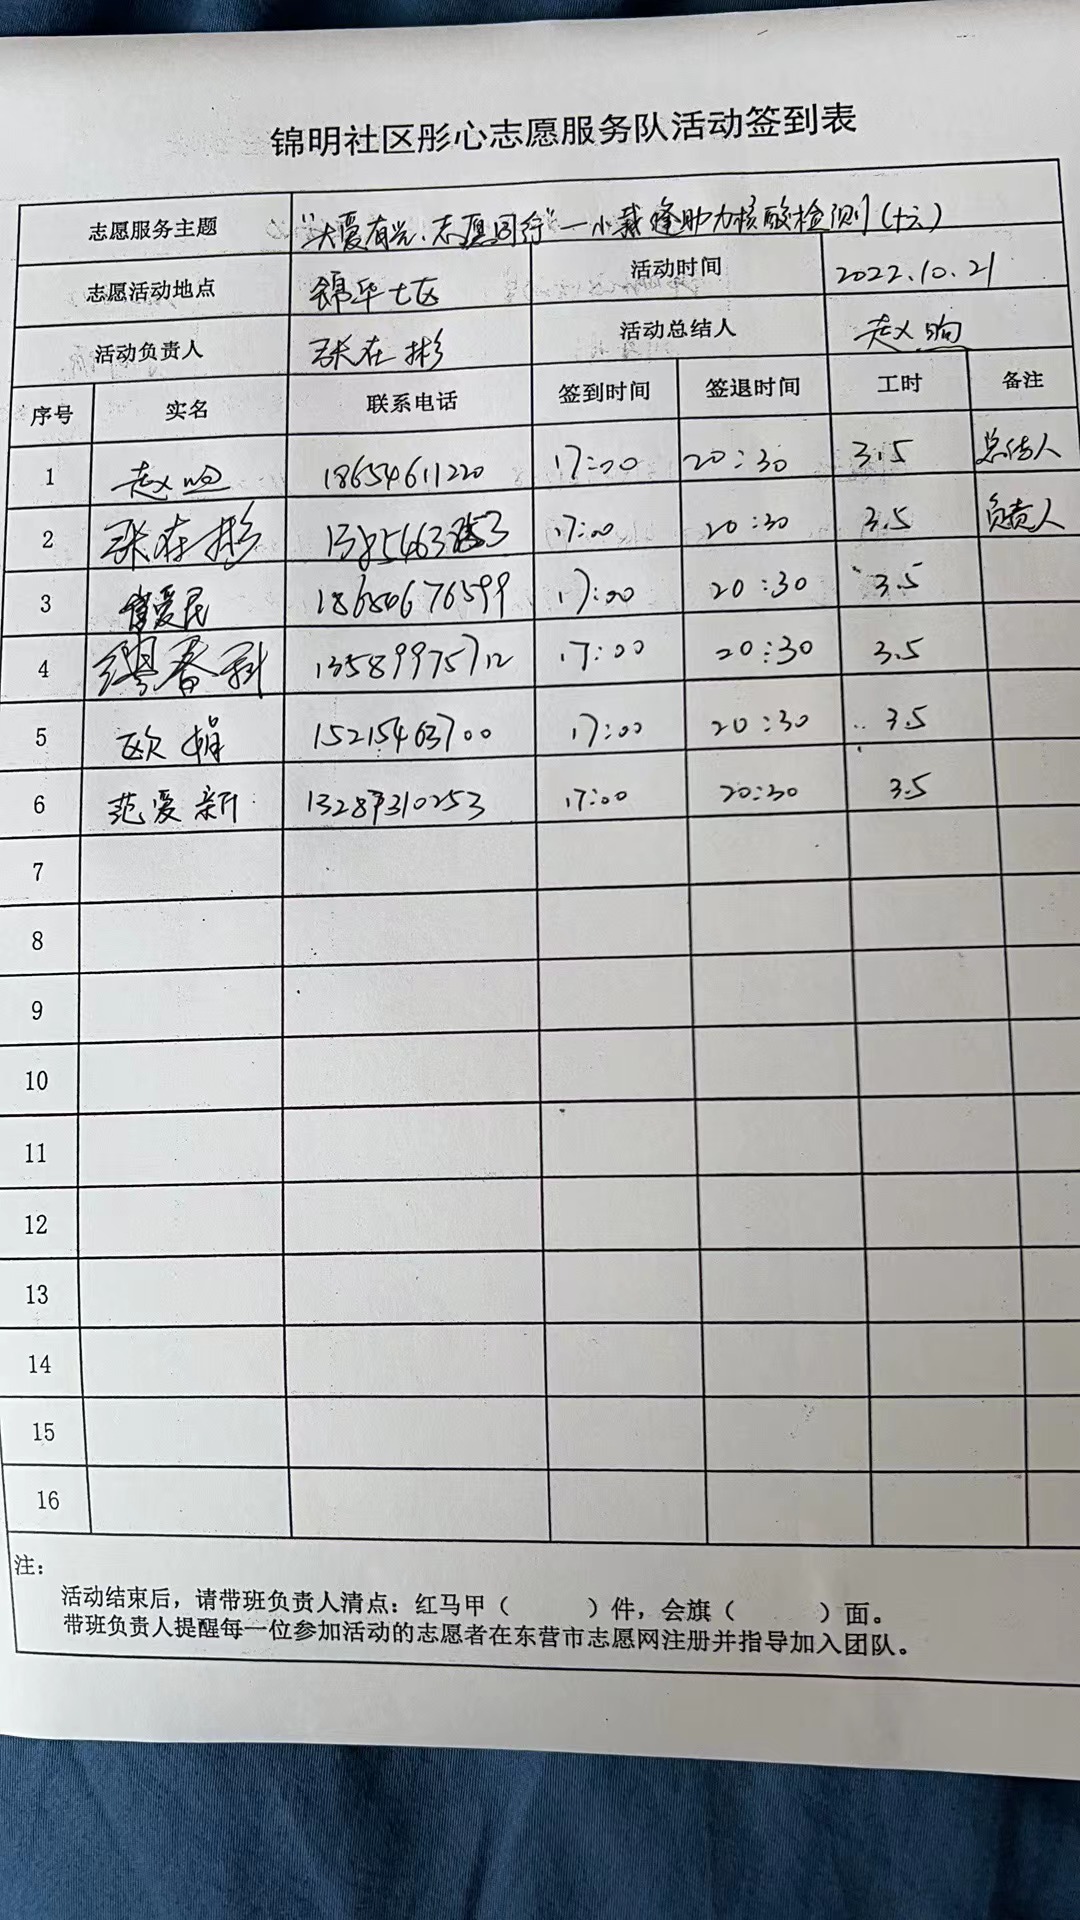 锦明社区彤心志愿服务队活动签到表
志愿服务主题 "大爱有光、志愿同行"—小裁缝助力核酸检测(十六)
志愿活动地点 锦华七区 活动时间 2022.10.21
活动负责人 张在彬 活动总结人 赵
序号 实名 联系电话 签到时间 签退时间 工时 备注
1 赵 18654611220 17:00 20:30 3.5 总结人
2 张在彬 17:00 20:30 3.5 负责人
3 爱民 17:00 20:30 3.5
4 春 13589975712 17:00 20:30 3.5
5 欧娟 15215463700 17:00 20:30 3.5
6 范爱新 17:00 20:30 3.5
7
8
9
10
11
12
13
14
15
16
注:
活动结束后，请带班负责人清点：红马甲（ ）件，会旗（ ）面。
带班负责人提醒每一位参加活动的志愿者在东营市志愿网注册并指导加入团队。